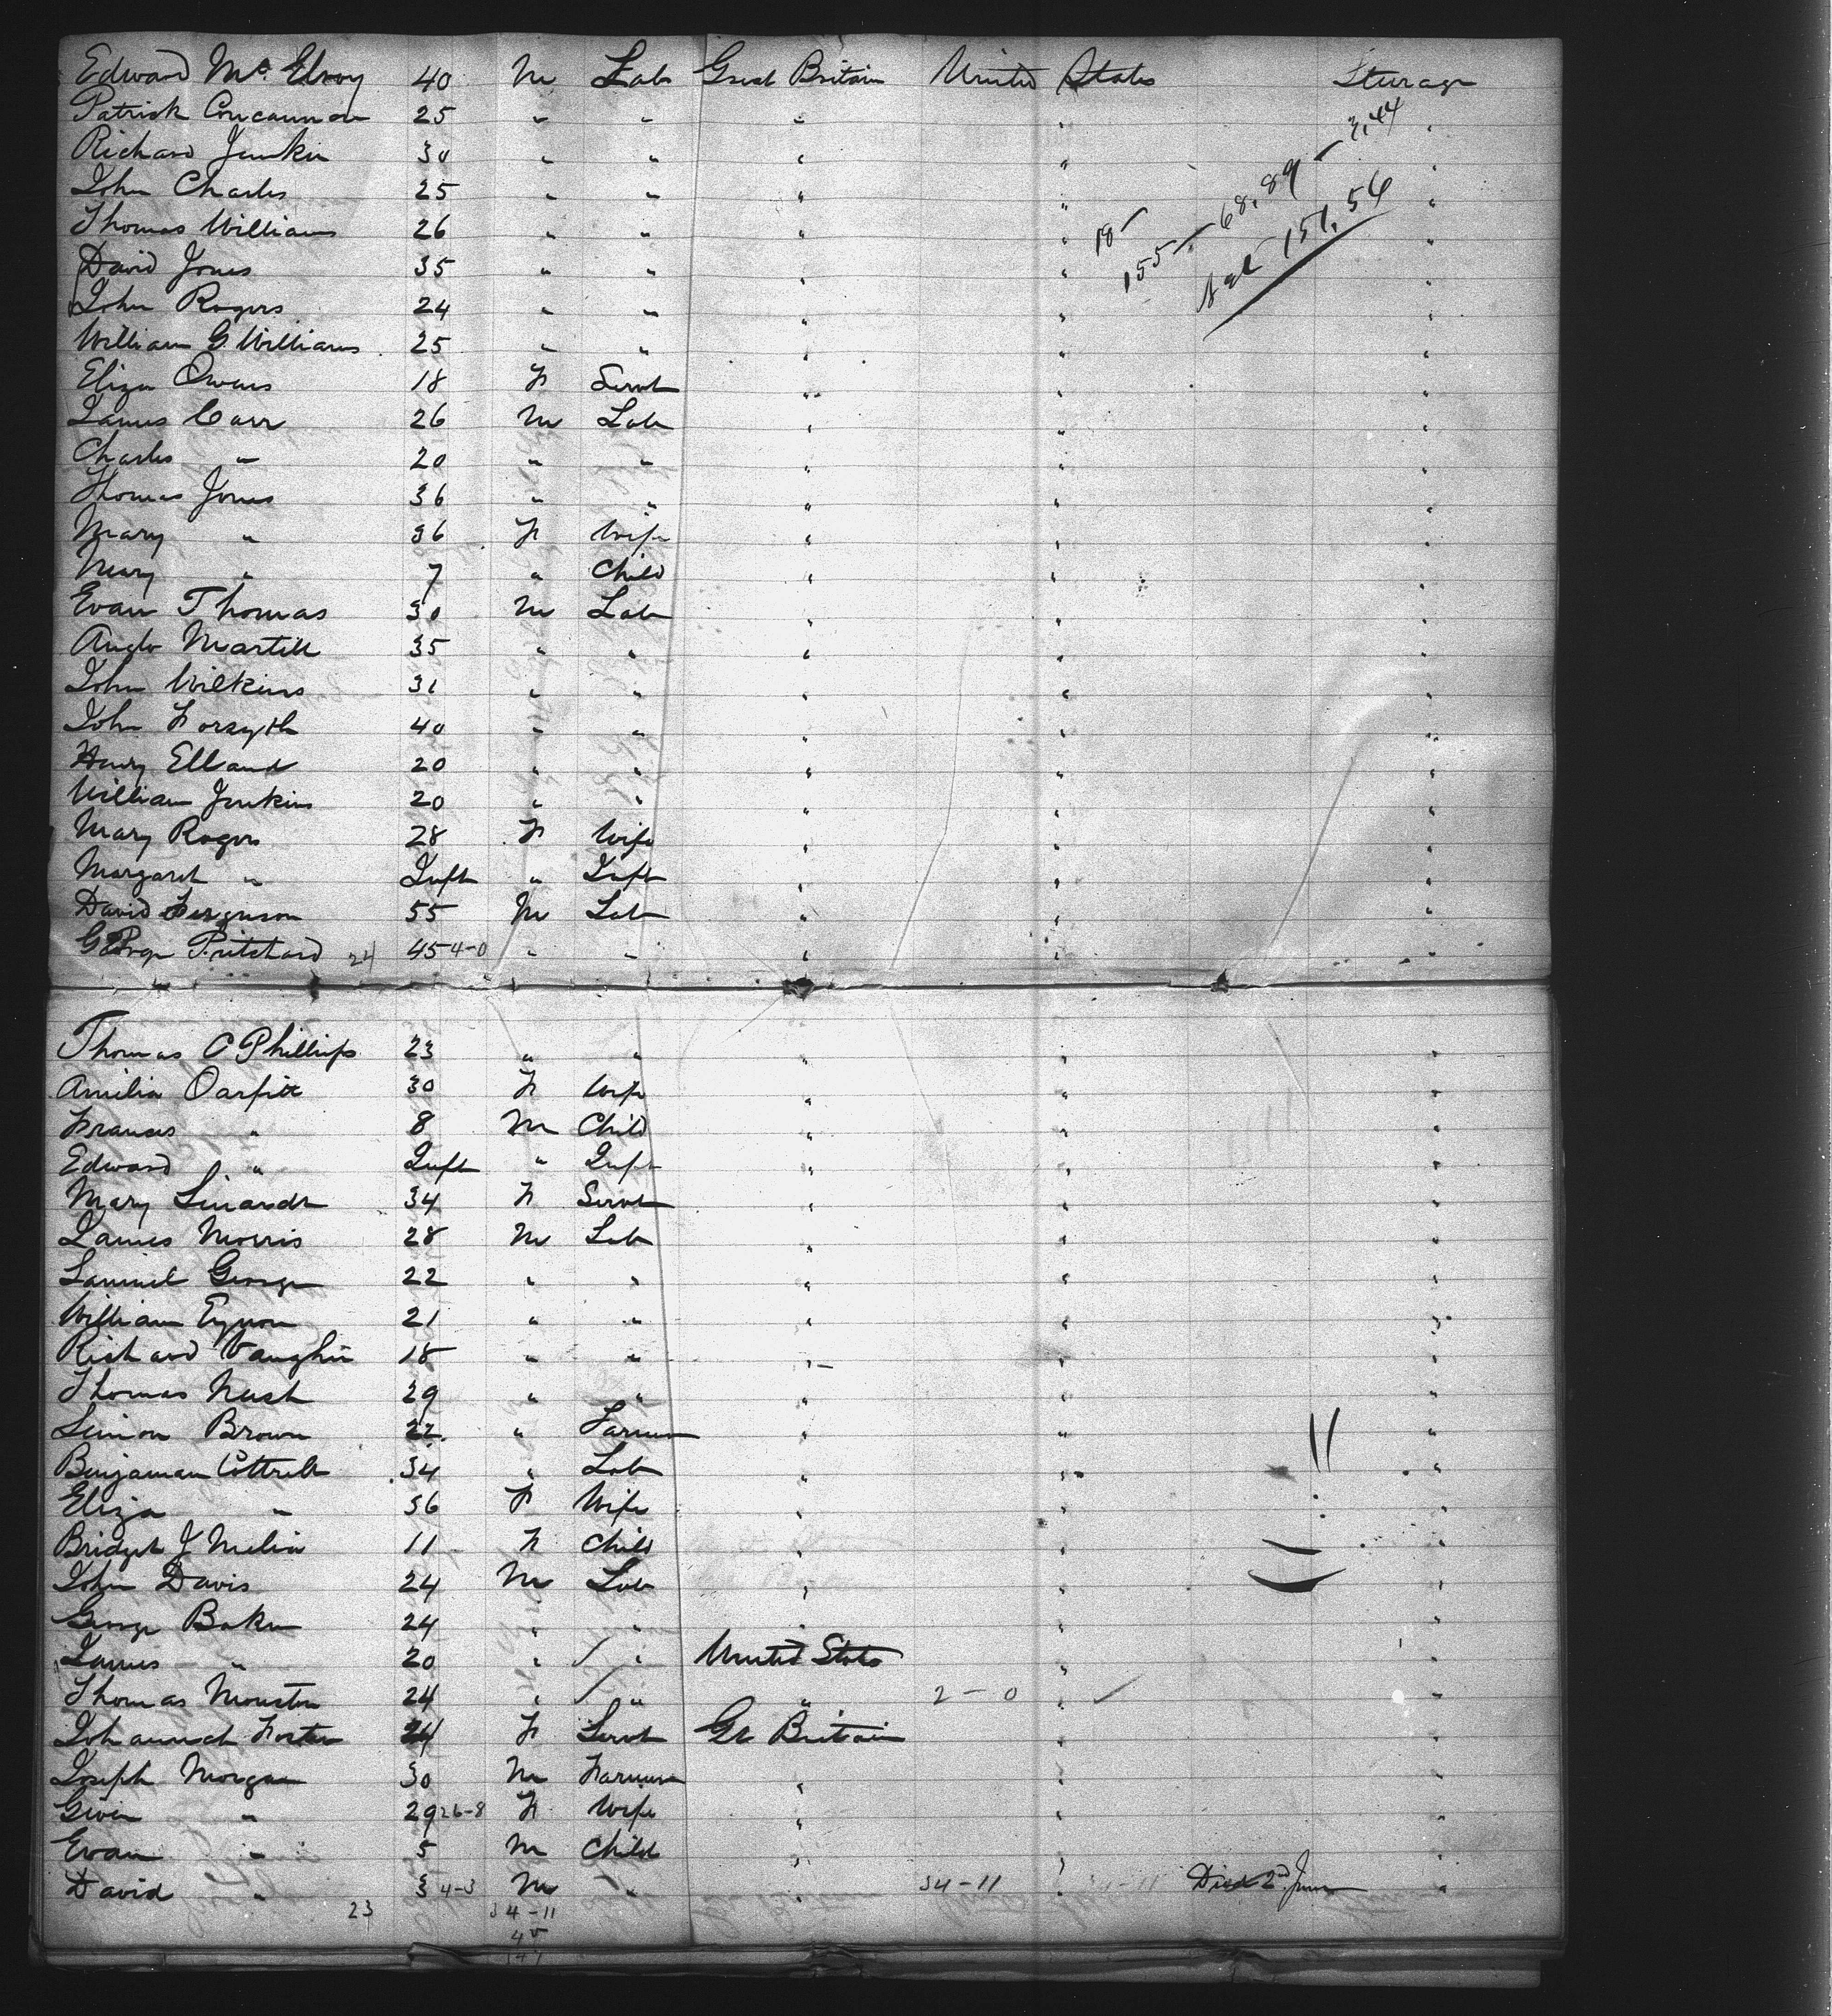 Edward Mc. Elroy 40 M Lab Great Britain United States Steurage
Patrick Concannon 25 " " " " "
Richard Junkin 30 " " " " "
John Charles 25 " " " " "
Thomas Williams 26 " " " " "
David Jones 35 " " " " "
John Rogers 24 " " " " "
William G. Williams 25 " " " " "
Eliza Owens 18 F Servt " " "
James Carr 26 M Lab " " "
Charles " 20 " " " " "
Thomas Jones 36 " " " " "
Mary " 36 F Wife " " "
Mary " 7 " Child " " "
Evan Thomas 30 M Lab " " "
Martell 35 " " " " "
John Wilkins 31 " " " " "
John Forsyth 40 " " " " "
Henry Elland 20 " " " " "
William Jenkins 20 " " " " "
Mary Rogers 28 F Wife " " "
Margaret " Inft " Inft " " "
David Ferguson 55 M Lab " " "
George Pritchard 24 45 4-0 " " " " "
18-
155- 68,89 - 3,44
151,56
Thomas C Phillips 23 " " " " "
Amilia Oarfitt 30 F Wife " " "
Frances " 8 M Child " " "
Edward " Inft " Inft " " "
Mary 34 F Servt " " "
James Morris 28 M Lab " " "
Samuel George 22 " " " " "
William Eynon 21 " " " " "
Richard Vaughn 18 " " " " "
Thomas Nash 29 " " " " "
Simon Brown 22 " Farmer " " "
Benjaman Cottrell 34 " Lab " " "
Eliza " 36 F Wife " " "
Bridget J Melia 11 F Child " " "
John Davis 24 M Lab " " "
George Baker 24 " " " " "
James " 20 " " United States " "
Thomas 24 " " " 2-0 " "
Johannah Foster 24 F Servt Gr Britain " "
Joseph Morgan 30 M Farmer " " "
Gwin " 29 26-8 F Wife " " "
Evan " 5 M Child " " "
David " 3 4-3 M " " 34-11 " Died 2nd June "
23 34-11